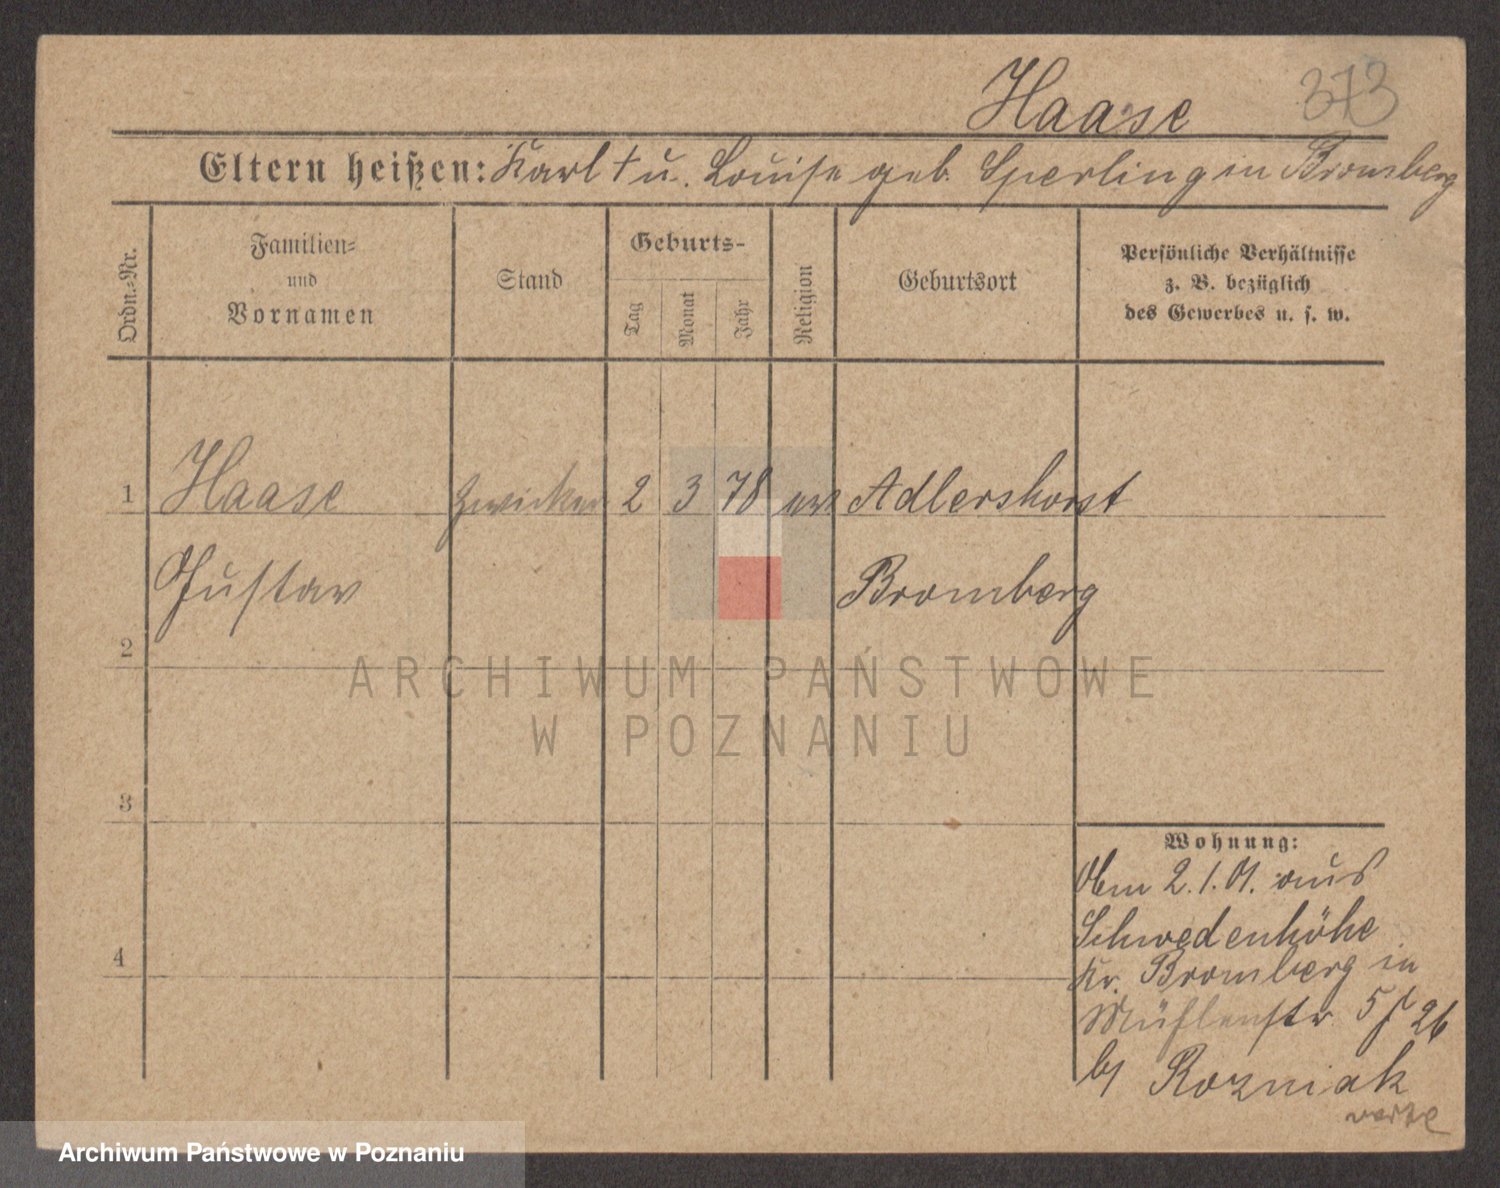 Haase 373
Eltern heißen: Karl † u. Louise geb. Sperling in Bromberg
Ordn.-Nr.
Familien-
und
Vornamen
Stand
Geburts-
Tag
Monat
Jahr
Religion
Geburtsort
Persönliche Verhältnisse
z. B. bezüglich
des Gewerbes u. s. w.
1 Haase Zwicker 2 3 78 ev Adlershorst
Gustav Bromberg
2
ARCHIWUM PAŃSTWOWE
W POZNANIU
3
4
Wohnung:
2.1.01. aus
Schwedenhöhe
Kr. Bromberg in
Mühlenstr 5 26
b/ Rozniak
Archiwum Państwowe w Poznaniu